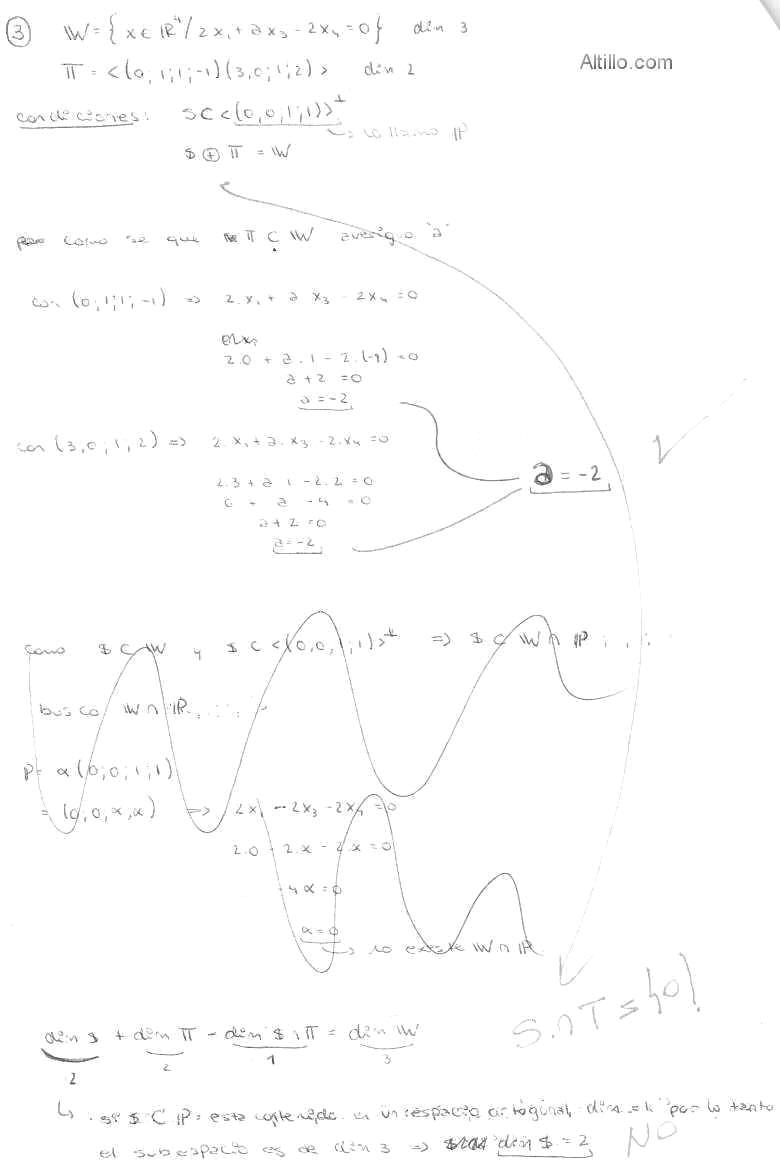 ③ W = { x ∈ ℝ⁴ / 2x₁ + a x₃ - 2x₄ = 0 } dim 3
Altillo.com
π = <(0, 1; 1; -1)(3, 0; 1; 2)> dim 2
condiciones: S C <(0, 0, 1; 1)>⊥
↳ lo llamo P
S ⊕ π = W
como se que π C W averiguo "a"
con (0; 1; 1; -1) => 2.x₁ + a x₃ - 2x₄ = 0
2.0 + a.1 - 2.(-1) = 0
a + 2 = 0
a = -2
con (3, 0; 1, 2) => 2.x₁ + a.x₃ - 2.x₄ = 0
a = -2
2.3 + a 1 - 2.2 = 0
6 + a - 4 = 0
a + 2 = 0
a = -2
como S C W y S C <(0, 0, 1; 1)>⊥ => S C W ∩ P
busco W ∩ P
P = α(0; 0; 1; 1)
= (0, 0, α, α) => 2x₁ - 2x₃ - 2x₄ = 0
2.0 - 2.α - 2.α = 0
-4α = 0
α = 0
↳ no existe W ∩ P
S ∩ T = {0}!
dim S + dim π - dim S ∩ π = dim W
2 2 1 3
↳ si S C P = esta contenido en un espacio ortogonal, dim = 1 por lo tanto
el subespacio es de dim 3 => dim S = 2
NO